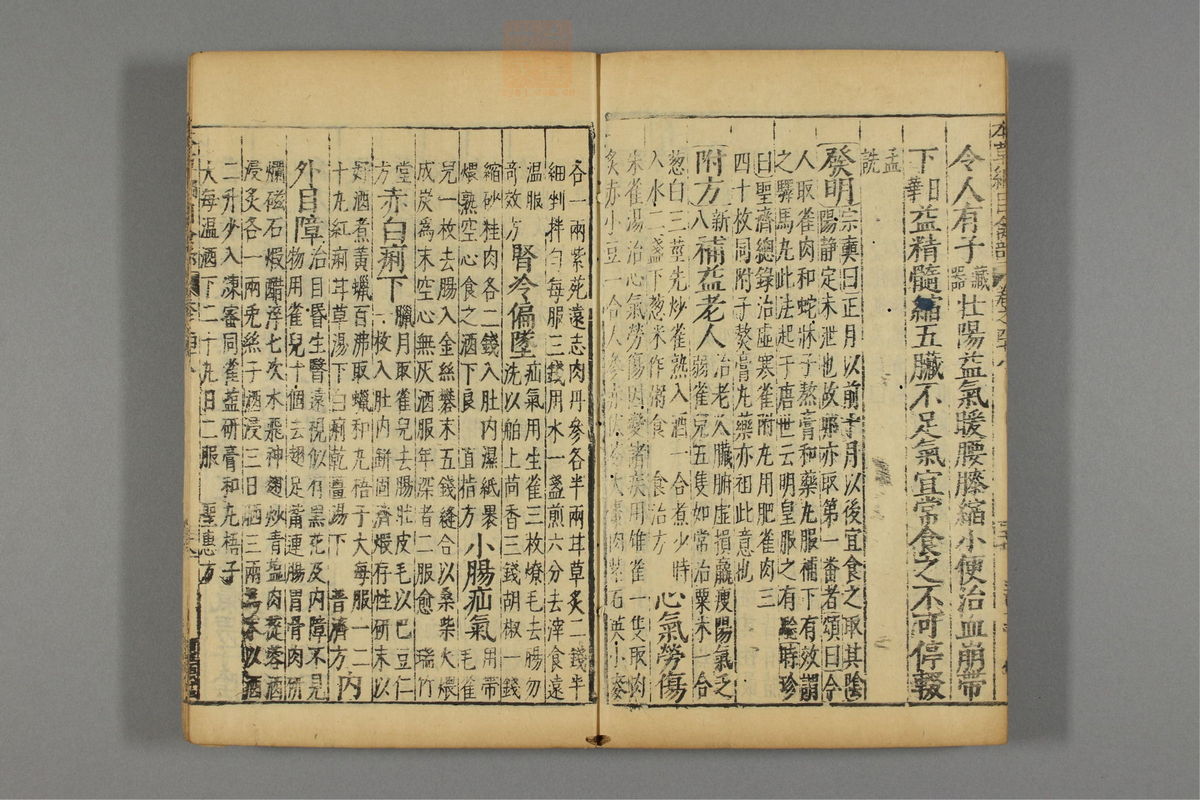 令人有子藏器壯陽益氣暖腰膝縮小便治血崩帶
下日華益精髓縮五臟不足氣宜常食之不可停輟
孟詵
發明宗奭曰正月以前十月以後宜食之取其陰
陽靜定未泄也故藥亦取第一番者頌曰今
人取雀肉和蛇牀子熬膏和藥丸服補下有效謂
之驛馬丸此法起于唐世云明皇服之有驗時珍
曰聖濟總錄治虛寒雀附丸用肥雀肉三
四十枚同附子熬膏丸藥亦祖此意也
附方新八補益老人治老人臟腑虛損羸瘦陽氣乏
弱雀兒五隻如常治粟米一合
葱白三莖先炒雀熟入酒一合煮少時
入水二盞下葱米作粥食 食治方 心氣勞傷
朱雀湯治心氣勞傷因變諸疾用雄雀一隻取肉
炙赤小豆一合人參赤伏苓大棗肉紫石英小麥
各一兩紫菀遠志肉丹參各半兩甘草炙二錢半
細剉拌勻每服三錢用水一盞煎六分去滓食遠
溫服 奇效方 腎冷偏墜疝氣用生雀三枚燎毛去腸勿
洗以舶上茴香三錢胡椒一錢
縮砂桂肉各二錢入肚內濕紙裹
煨熟空心食之酒下良 直指方 小腸疝氣用帶毛雀
兒一枚去腸入金絲礬末五錢縫合以桑柴火煨
成炭爲末空心無灰酒服年深者二服愈 瑞竹
堂方 赤白痢下臘月取雀兒去腸肚皮毛以巴豆仁
一枚入肚內缾固濟煅存性研末以
好酒煮黃蠟百沸取蠟和丸梧子大每服一二
十丸紅痢甘草湯下白痢乾薑湯下 普濟方 內
外目障治目昏生翳遠視似有黑花及內障不見
物用雀兒十個去翅足觜連腸胃骨肉研
爛磁石煅醋淬七次水飛神麴炒青鹽肉蓯蓉酒
浸炙各一兩兎絲子酒浸三日晒三兩爲末以酒
二升少入煉蜜同雀鹽研膏和丸梧子
大每溫酒下二十丸日二服 聖惠方